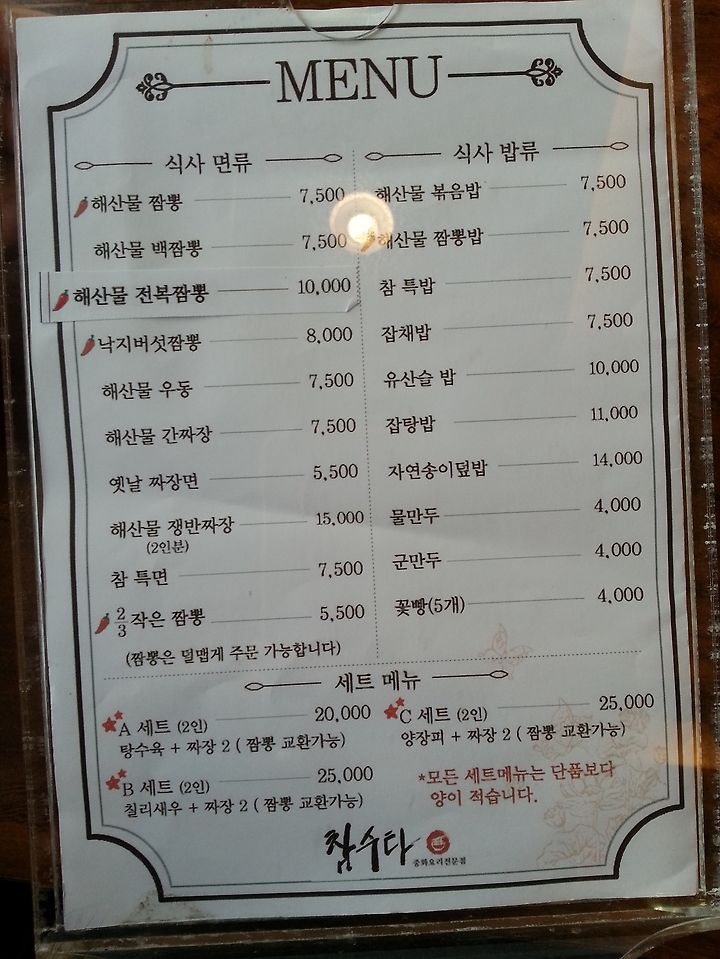 MENU
식사 면류
해산물 짬뽕 7,500
해산물 백짬뽕 7,500
해산물 전복짬뽕 10,000
낙지버섯짬뽕 8,000
해산물 우동 7,500
해산물 간짜장 7,500
옛날 짜장면 5,500
해산물 쟁반짜장 15,000
(2인분)
참 특면 7,500
2/3 작은 짬뽕 5,500
(짬뽕은 덜맵게 주문 가능합니다)
식사 밥류
해산물 볶음밥 7,500
해산물 짬뽕밥 7,500
참 특밥 7,500
잡채밥 7,500
유산슬 밥 10,000
잡탕밥 11,000
자연송이덮밥 14,000
물만두 4,000
군만두 4,000
꽃빵(5개) 4,000
세트 메뉴
A 세트 (2인) 20,000
탕수육 + 짜장 2 ( 짬뽕 교환가능)
B 세트 (2인) 25,000
칠리새우 + 짜장 2 ( 짬뽕 교환가능)
C 세트 (2인) 25,000
양장피 + 짜장 2 ( 짬뽕 교환가능)
*모든 세트메뉴는 단품보다
양이 적습니다.
참수타
중화요리전문점